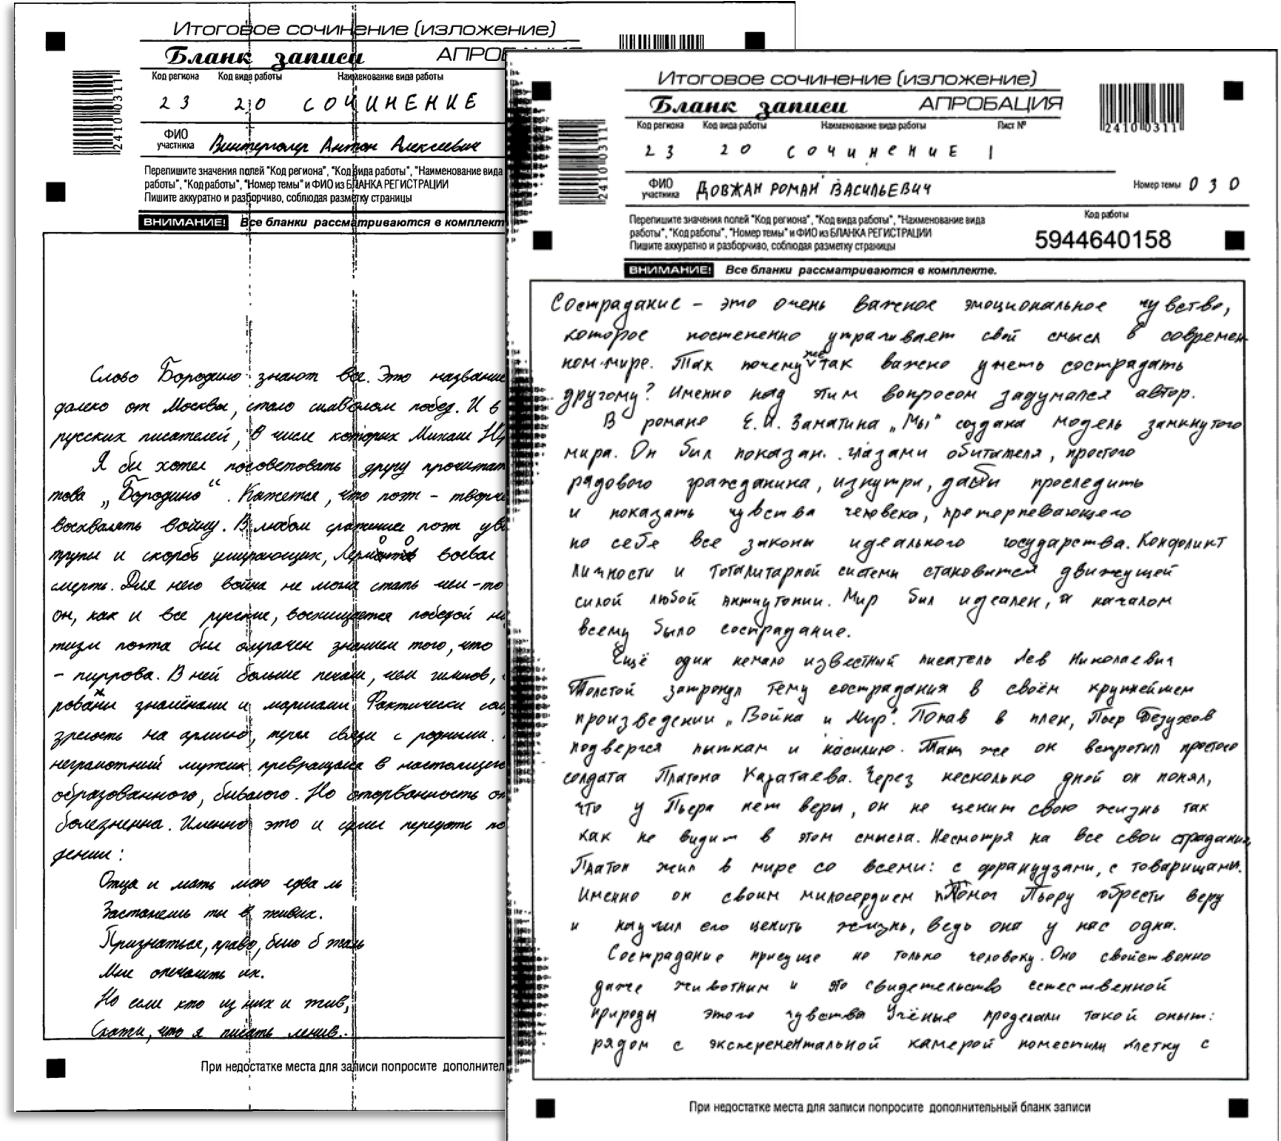 Итоговое сочинение (изложение)
Бланк записи
АПРО
Код региона Код вида работы Наименование вида работы
23 20 СОЧИНЕНИЕ
2410 0311
ФИО участника Антон Алексеевич
Перепишите значения полей "Код региона", "Код вида работы", "Наименование вида
работы", "Код работы", "Номер темы" и ФИО из БЛАНКА РЕГИСТРАЦИИ
Пишите аккуратно и разборчиво, соблюдая разметку страницы
ВНИМАНИЕ! Все бланки рассматриваются в комплект
Слово Бородино знают все. Это название
далеко от Москвы, стало символом побед. И в
русских писателей, в числе которых Михаил
Я бы хотел посоветовать другу прочитат
това „Бородино“. Кажется, что поэт - творч
восхвалять войну. В любом сражении поэт
трупы и скорбь умирающих, Лермонтов воевал
смерть. Для него война не могла стать чем-то
он, как и все русские, восхищается победой
тизм поэта был омрачен знанием того, что
- пиррова. В ней больше печали, чем гимнов,
знамёнами и маршами. Фактически
на армию, теряя связи с родными.
неграмотный мужик превращался в настоящего
образованного, бывалого. Но оторванность
болезненна. Именно это и сумел передать по
дении:
Отца и мать мою едва ль
Застанешь ты в живых.
Признаться, право, было б жаль
Мне опечалить их.
Но если кто из них и жив,
Скажи, что я писать ленив.
При недостатке места для записи попросите дополнител
Итоговое сочинение (изложение)
Бланк записи АПРОБАЦИЯ
Код региона Код вида работы Наименование вида работы Лист №
23 20 СОЧИНЕНИЕ 1
2410 0311
2410 0311
ФИО участника ДОВЖАН РОМАН ВАСИЛЬЕВИЧ Номер темы 030
Перепишите значения полей "Код региона", "Код вида работы", "Наименование вида
работы", "Код работы", "Номер темы" и ФИО из БЛАНКА РЕГИСТРАЦИИ
Пишите аккуратно и разборчиво, соблюдая разметку страницы
Код работы
5944640158
ВНИМАНИЕ! Все бланки рассматриваются в комплекте.
Сострадание – это очень важное эмоциональное чувство,
которое постепенно утрачивает свой смысл в современ
ном мире. Так почему же так важно уметь сострадать
другому? Именно над этим вопросом задумался автор.
В романе Е. И. Замятина „Мы“ создана модель замкнутого
мира. Он был показан глазами обитателя, простого
рядового гражданина, изнутри, дабы проследить
и показать чувства человека, претерпевающего
по себе все законы идеального государства. Конфликт
личности и тоталитарной системы становится движущей
силой любой антиутопии. Мир был идеален, а началом
всему было сострадание.
Ещё один немало известный писатель Лев Николаевич
Толстой затронул тему сострадания в своём крупнейшем
произведении „Война и мир“. Попав в плен, Пьер Безухов
подвергся пыткам и насилию. Там же он встретил простого
солдата Платона Каратаева. Через несколько дней он понял,
что у Пьера нет веры, он не ценит свою жизнь так
как не видит в этом смысла. Несмотря на все свои страдания,
Платон жил в мире со всеми: с французами, с товарищами.
Именно он своим милосердием помог Пьеру обрести веру
и научил его ценить жизнь, ведь она у нас одна.
Сострадание присуще не только человеку. Оно свойственно
даже животным и это свидетельство естественной
природы этого чувства Учёные проделали такой опыт:
рядом с эксперементальной камерой поместили клетку с
При недостатке места для записи попросите дополнительный бланк записи